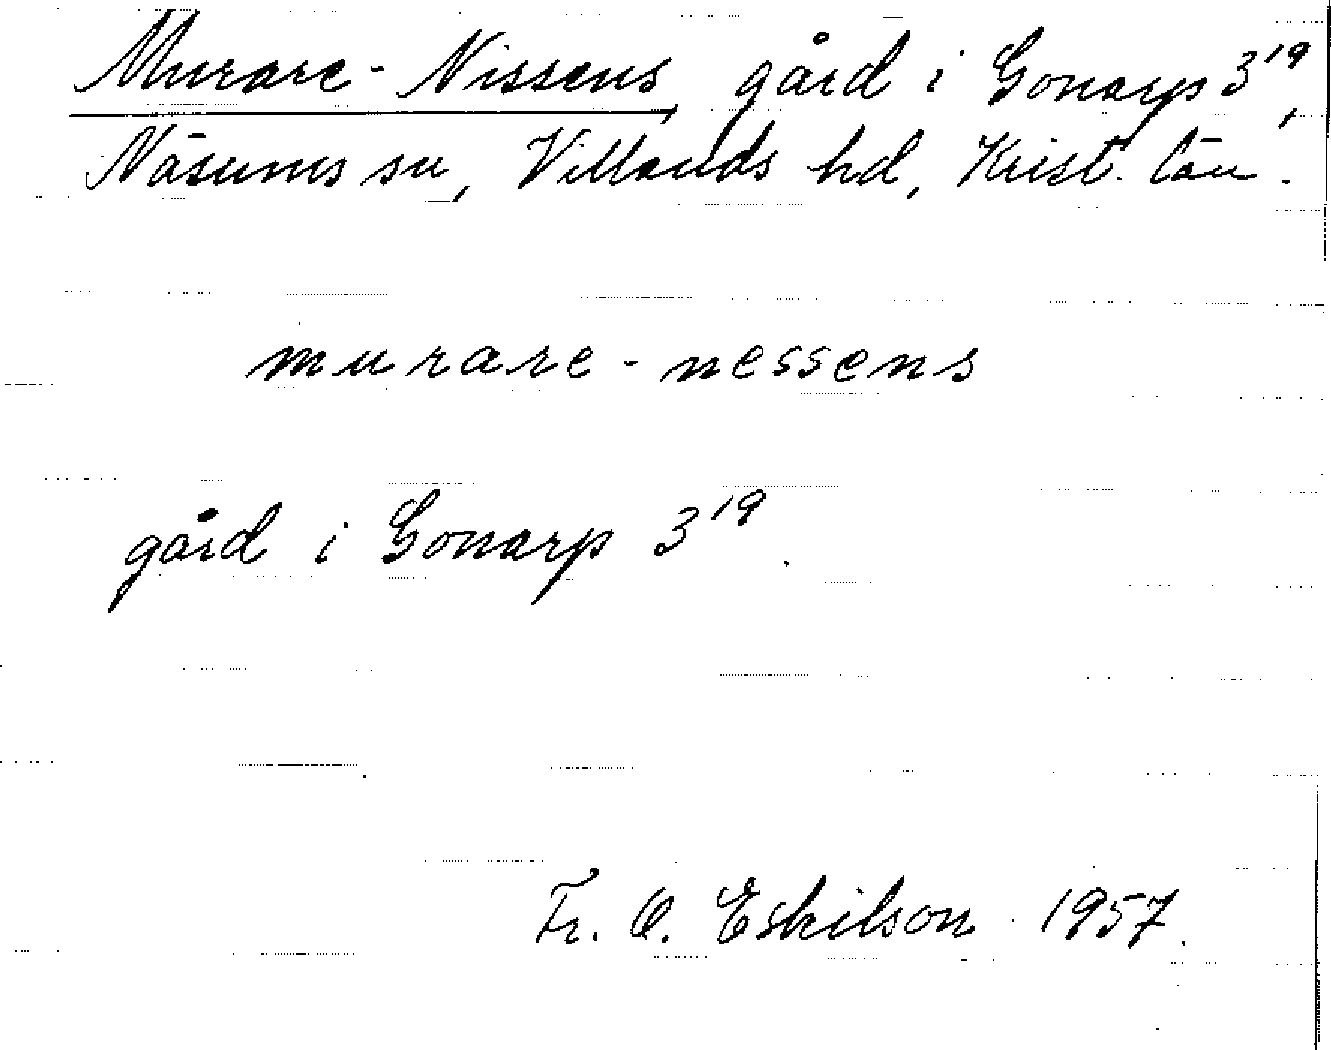 Murare-Nissens, gård i Gonarp 3¹⁹,
Näsums sn, Villands hd, Krist. län.
murare-nessens
gård i Gonarp 3¹⁹.
Fr. O. Eskilson 1957.